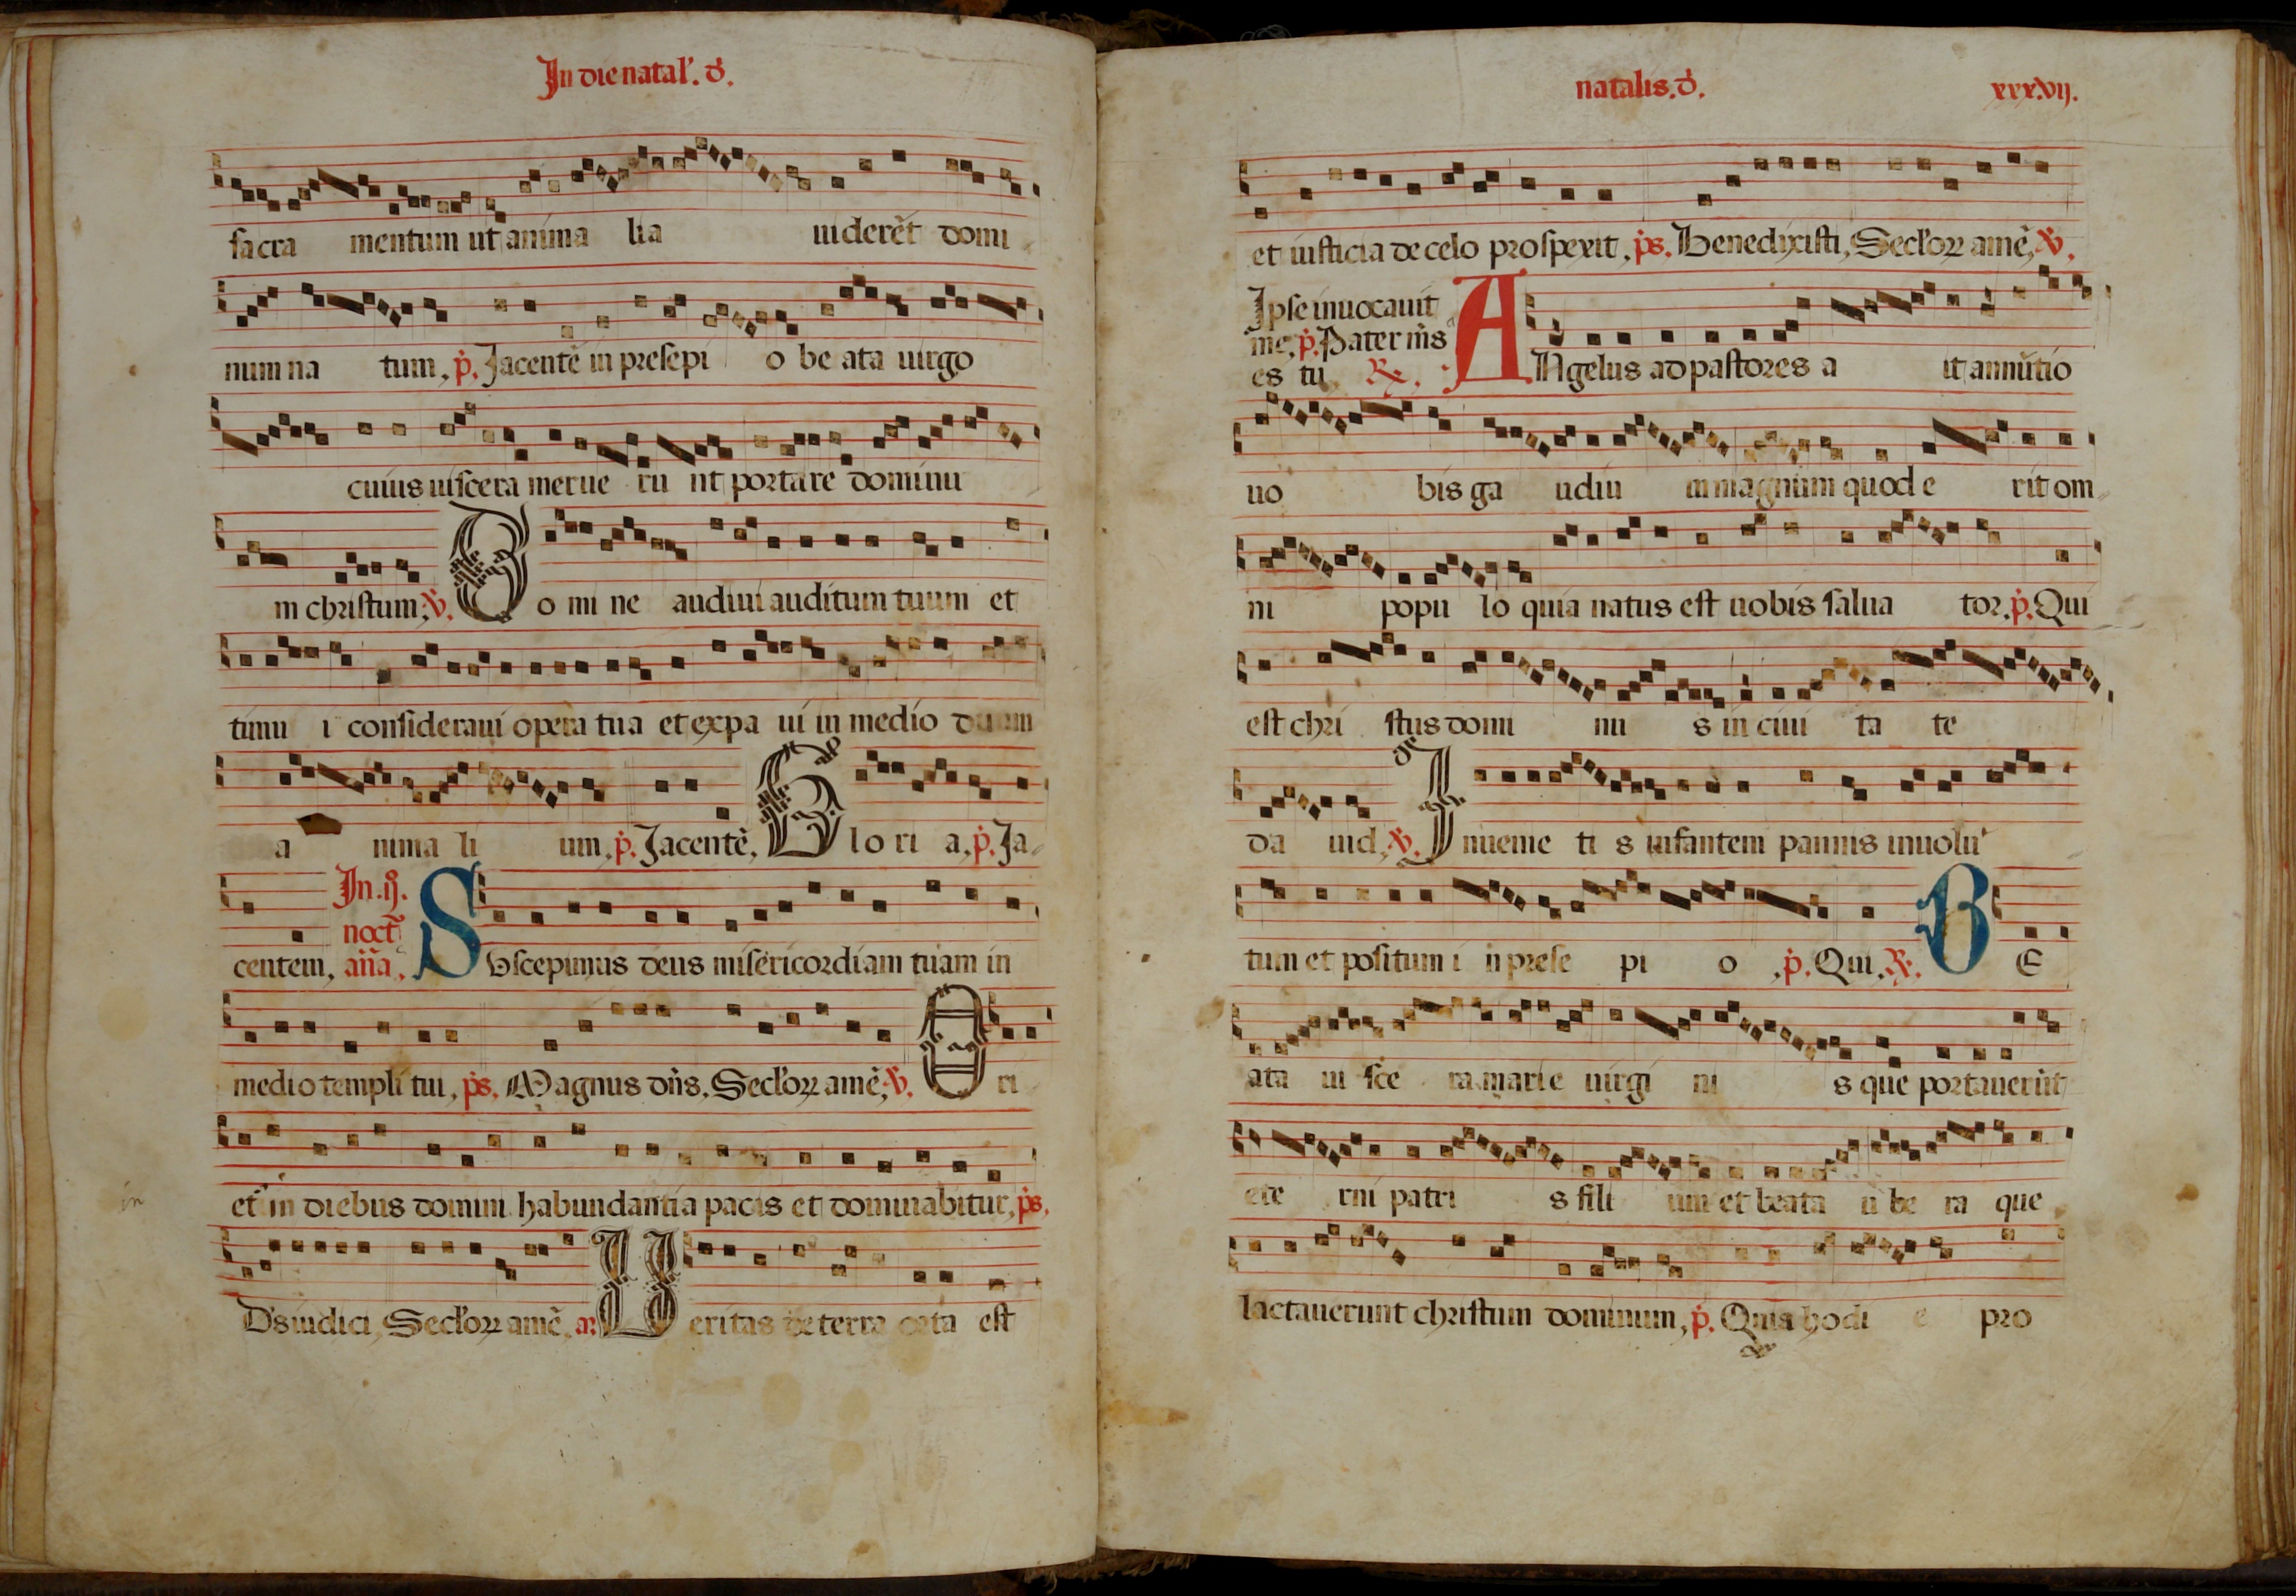 In die natal'. d̄.
sacra mentum ut anima lia uiderēt domi
num na tum, p̄. Jacentē in presepi o be ata uirgo
cuius uiscera merue ru nt portare dominū
m christum. v̄.
Do mi ne audiui auditum tuum et
timu i consideraui opera tua et expa ui in medio duum
a nima li um, p̄. Jacentē, Glo ri a, p̄. Ja
In .ij.
noct̄
centem, an̄a, Suscepimus deus misericordiam tuam in
medio templi tui, ps. Magnus dn̄s. Secl'oꝝ amē, v̄. Ori
et in diebus domini habundantia pacis et dominabitur, ps.
in
D's iudici, Secl'oꝝ amē, a. Ueritas de terra orta est
natalis. d̄. xxxvij.
et iusticia de celo prospexit, ps. Benedixisti, Secl'oꝝ amē, v̄.
Ipse inuocauit
me, p̄. Pater m̄s
es tu ℟.
ANgelus ad pastores a it annūtio
uo bis ga udiu m magnum quod e rit om
ni popu lo quia natus est uobis salua tor. p̄. Qui
est chri stus domi nu s in ciui ta te
da uid, v̄. Inuenie ti s infantem pannis inuolu
tum et positum i n prese pi o, p̄. Qui, ℟. BE
ata ui sce ra marie uirgi ni s que portauerūt
ete rni patri s fili um et beata u be ra que
lactauerunt christum dominum, p̄. Quia hodi e pro